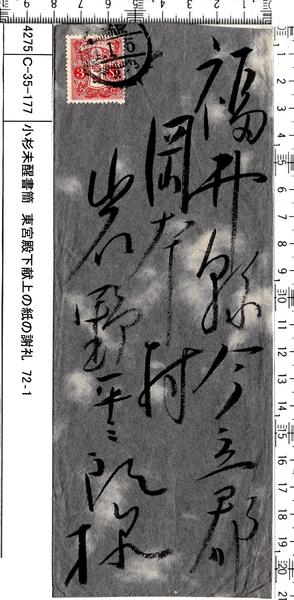 福井縣今立郡
岡本村
岩野平三郎様
4275 C-35-177 小杉未醒書簡 東宮殿下献上の紙の謝礼 72-1